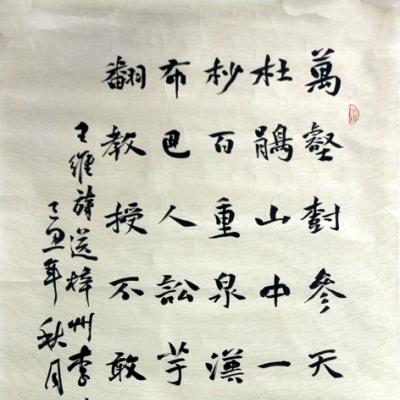 萬壑樹參天
杜鵑山中一
杪百重泉漢
布巴人訟芋
翻教授不敢
王維詩送梓州李
丁丑年秋月